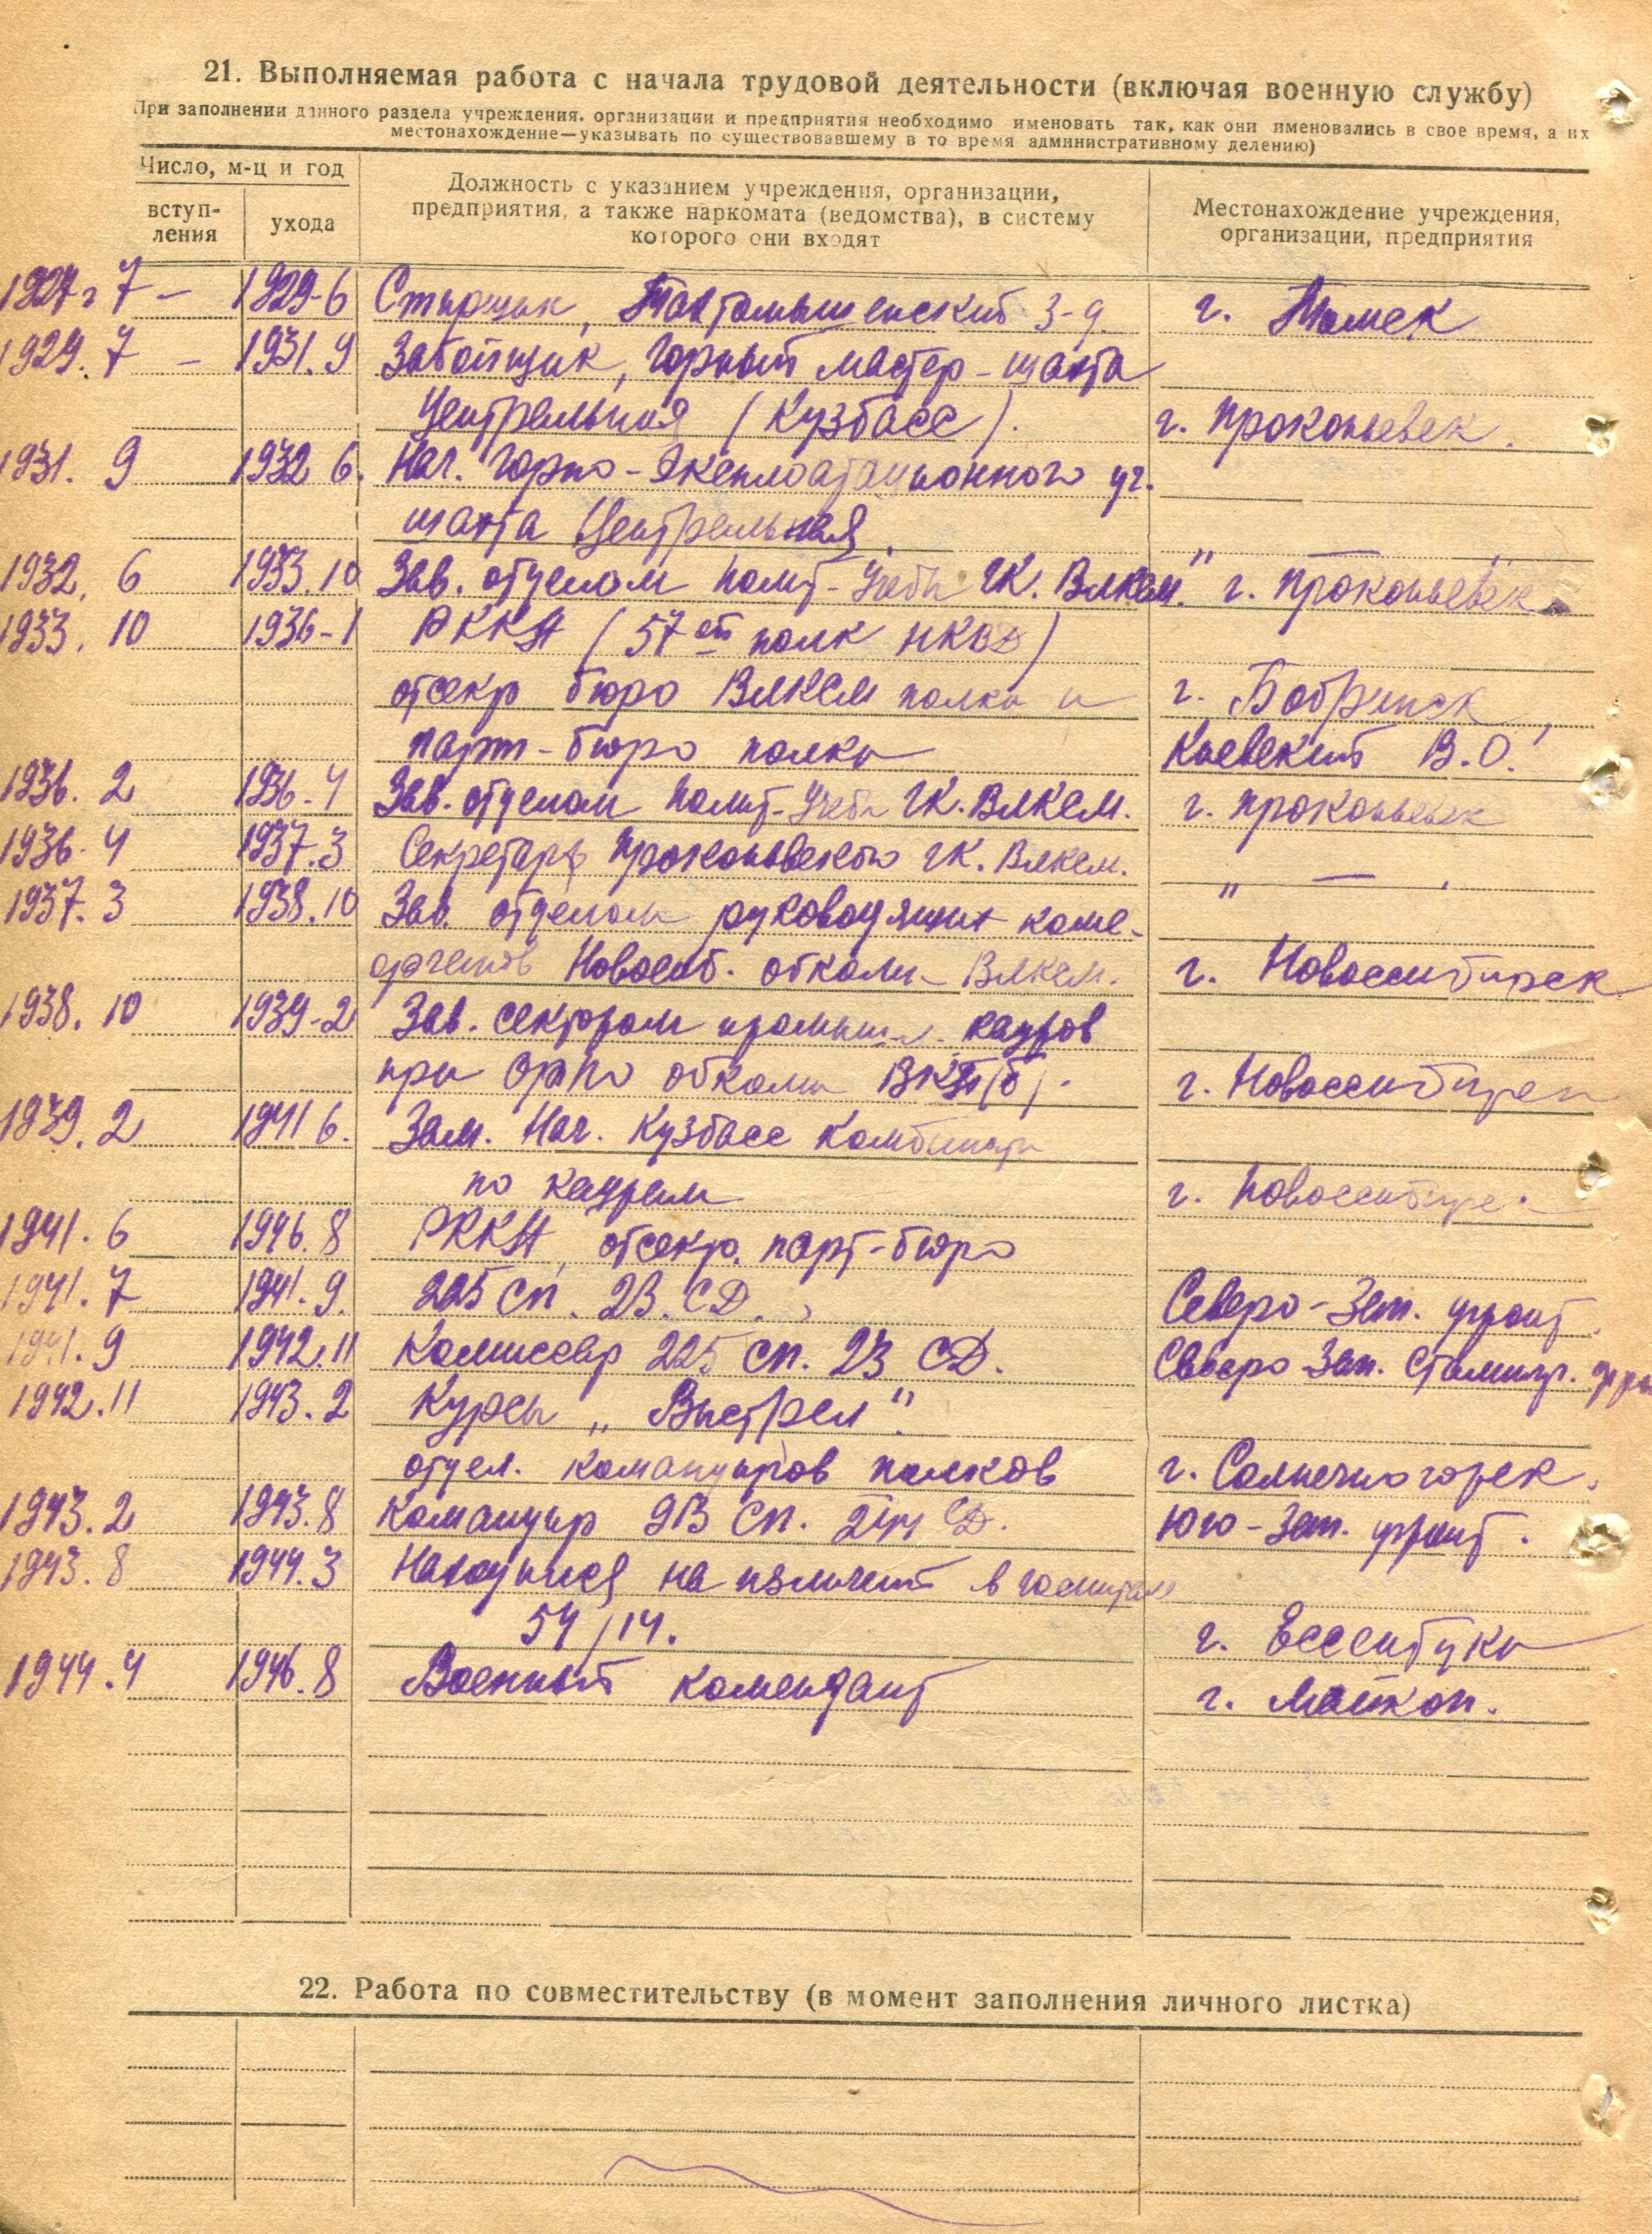 21. Выполняемая работа с начала трудовой деятельности (включая военную службу)
При заполнении данного раздела учреждения, организации и предприятия необходимо именовать так, как они именовались в свое время, а их
местонахождение—указывать по существовавшему в то время административному делению)
Число, м-ц и год
вступ-
ления
ухода
Должность с указанием учреждения, организации,
предприятия, а также наркомата (ведомства), в систему
которого они входят
Местонахождение учреждения,
организации, предприятия
1927 г 7 — 1929-6 з-д. г. Томск
1929. 7 — 1931. 9 Забойщик, горный мастер - шахта
Центральная (Кузбасс). г. Прокопьевск.
1931. 9 1932 6. Нач. горно-эксплоатационного уч.
шахта Центральная. " —
1932. 6 1933.10 Зав. отделом полит-учебы ГК. ВЛКСМ. г. Прокопьевск
1933. 10 1936-1 РККА (57 ой полк НКВД)
отсекр бюро ВЛКСМ полка и г.
парт-бюро полка Киевский В.О.
1936. 2 1936.4 Зав. отделом полит-учебы ГК. ВЛКСМ. г. Прокопьевск
1936. 4 1937.3 Секретарь Прокопьевского ГК. ВЛКСМ. " — .
1937. 3 1938.10 Зав. отделом руководящих комс-
органов Новосиб. обкома ВЛКСМ. г. Новосибирск
1938. 10 1939-2 Зав. сектором промышл. кадров
при Орпо обкома ВКП(б). г. Новосибирск
1939. 2 1941 6. Зам. Нач. Кузбасс Комбината
по кадрам г. Новосибирс.
1941. 6 1946.8 РККА, отсекр. парт-бюро
1941. 7 1941. 9. 225 СП. 23. СД. Северо-Зап. фронт.
1941. 9 1942.11 Комиссар 225 СП. 23 СД. Северо Зап. Сталингр. фро
1942.11 1943. 2 Курсы „Выстрел"
отдел. командиров полков г. Солнечногорск.
1943. 2 1943.8 Командир 913 СП. СД. Юго-Зап. фронт.
1943. 8 1944.3 Находился на излечении в госпитале
54/14. г. Ессентуки
1944.4 1946.8 Военный комендант г. Майкоп.
22. Работа по совместительству (в момент заполнения личного листка)